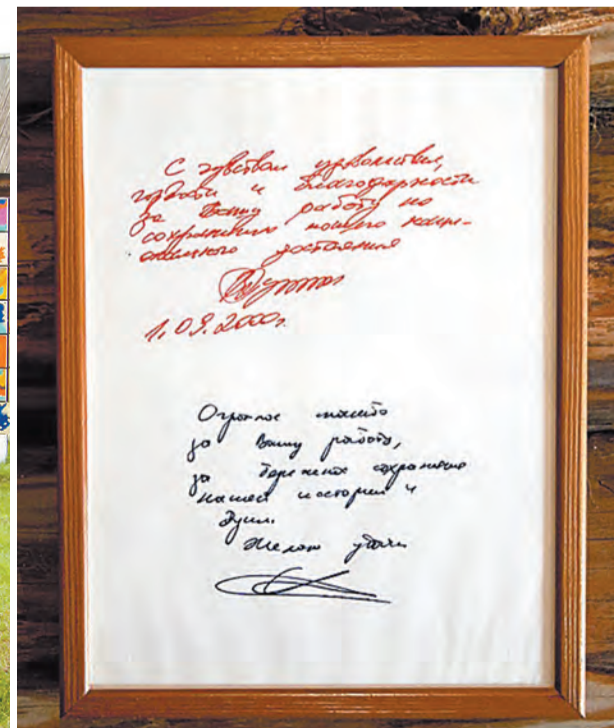 С чувством удовольствия,
гордости и благодарности
за Вашу работу по
сохранению нашего нацио-
нального достояния
1.09.2000г.
Огромное спасибо
за Вашу работу,
за бережное сохранение
нашей истории и
души.
Желаю удачи